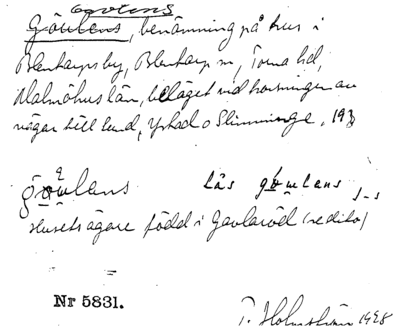 Göulens
Göulens, benämning på hus i
Blentarps by, Blentarp sn, Torna hd,
Malmöhus län, beläget vid korsningen av
vägar till Lund, Ystad o Slimminge, 193
göulens läs göulens
Husets ägare född i Gavlaröd
Nr 5831.
1928